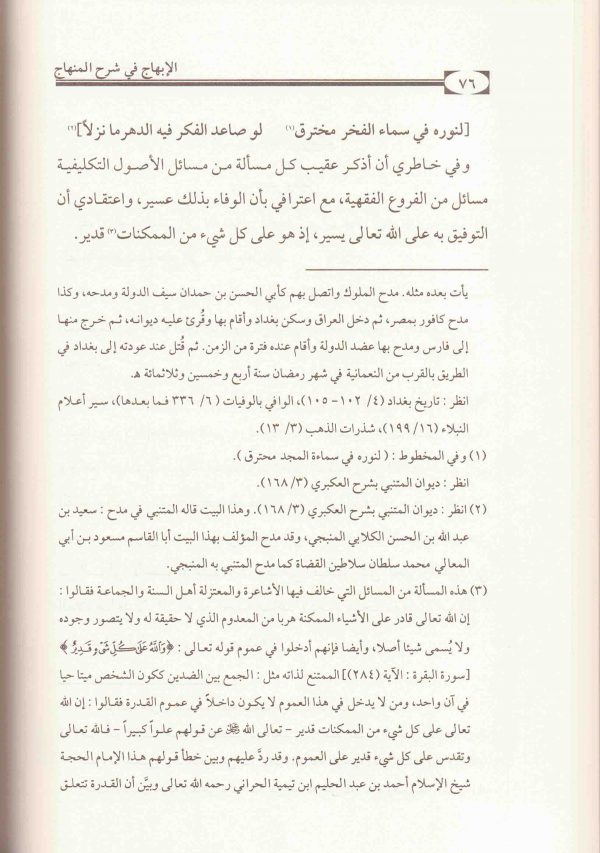 الإبهاج في شرح المنهاج
٧٦
[لنوره في سماء الفخر مخترق(١) لو صاعد الفكر فيه الدهر ما نزلاً](٢)
وفي خاطري أن أذكر عقيب كل مسألة من مسائل الأصول التكليفية
مسائل من الفروع الفقهية، مع اعترافي بأن الوفاء بذلك عسير، واعتقادي أن
التوفيق به على الله تعالى يسير، إذ هو على كل شيء من الممكنات(٣) قدير.
يأت بعده مثله. مدح الملوك واتصل بهم كأبي الحسن بن حمدان سيف الدولة ومدحه، وكذا
مدح كافور بمصر، ثم دخل العراق وسكن بغداد وأقام بها وقُرئ عليه ديوانه، ثم خرج منها
إلى فارس ومدح بها عضد الدولة وأقام عنده فترة من الزمن. ثم قُتل عند عودته إلى بغداد في
الطريق بالقرب من النعمانية في شهر رمضان سنة أربع وخمسين وثلاثمائة ﻫ.
انظر : تاريخ بغداد (٤/ ١٠٢- ١٠٥)، الوافي بالوفيات (٦/ ٣٣٦ فما بعدها)، سير أعلام
النبلاء (١٦/ ١٩٩)، شذرات الذهب (٣/ ١٣).
(١) وفي المخطوط : ( لنوره في سماءة المجد محترق ).
انظر : ديوان المتنبي بشرح العكبري (٣/ ١٦٨).
(٢) انظر : ديوان المتنبي بشرح العكبري (٣/ ١٦٨). وهذا البيت قاله المتنبي في مدح : سعيد بن
عبد الله بن الحسن الكلابي المنبجي، وقد مدح المؤلف بهذا البيت أبا القاسم مسعود بن أبي
المعالي محمد سلطان سلاطين القضاة كما مدح المتنبي به المنبجي.
(٣) هذه المسألة من المسائل التي خالف فيها الأشاعرة والمعتزلة أهل السنة والجماعة فقالوا :
إن الله تعالى قادر على الأشياء الممكنة هربا من المعدوم الذي لا حقيقة له ولا يتصور وجوده
ولا يُسمى شيئا أصلا، وأيضا فإنهم أدخلوا في عموم قوله تعالى : ﴿وَٱللَّهُ عَلَىٰ كُلِّ شَىْءٍ قَدِيرٌ﴾
[سورة البقرة : الآية (٢٨٤)] الممتنع لذاته مثل : الجمع بين الضدين ككون الشخص ميتا حيا
في آن واحد، ومن لا يدخل في هذا العموم لا يكون داخلاً في عموم القدرة فقالوا : إن الله
تعالى على كل شيء من الممكنات قدير – تعالى الله ﷻ عن قولهم علواً كبيراً – فالله تعالى
وتقدس على كل شيء قدير على العموم. وقد ردَّ عليهم وبين خطأ قولهم هذا الإمام الحجة
شيخ الإسلام أحمد بن عبد الحليم ابن تيمية الحراني رحمه الله تعالى وبيَّن أن القدرة تتعلق